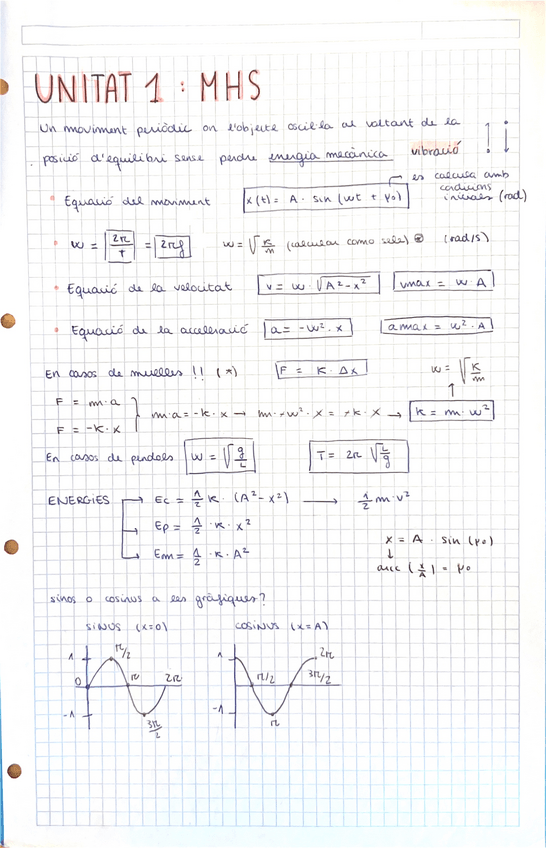 UNITAT 1 : MHS
Un moviment periòdic on l'objecte oscil·la al voltant de la
posició d'equilibri sense perdre energia mecànica vibració !¡
• Equació del moviment x(t) = A · sin (ωt + φ0) → es calcula amb condicions inicials (rad)
• ω = 2π/T = 2πf ω = √(K/m) (calcular como sale) (rad/s)
• Equació de la velocitat v = ω · √(A²-x²) vmax = ω · A
• Equació de la acceleració a = -ω² · x amax = ω² · A
En casos de muelles !! (*) F = K · Δx ω = √(K/m)
F = m·a
F = -K·x } m·a = -k·x → m·-ω²·x = -k·x → k = m·ω²
En casos de pendols ω = √(g/L) T = 2π √(L/g)
ENERGIES → Ec = 1/2 K · (A²-x²) → 1/2 m·v²
→ Ep = 1/2 · K · x²
→ Em = 1/2 · K · A²
x = A · sin (φ0)
↓
arc (x/A) = φ0
sinos o cosinus a les gràfiques?
SINUS (x=0) COSINUS (x=A)
1 π/2 1 2π
0 π 2π π/2 3π/2
-1 3π/2 -1 π